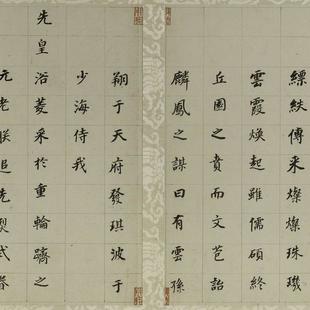 縹紩傳来燦燦珠璣
雲霞煥起雖儒碩終
丘園之賁而文苞詒
麟鳳之謀曰有雲孫
翔于天府發琪波于
少海侍我
先皇浴菱采於重輪躋之
元老朕追先烈式眷